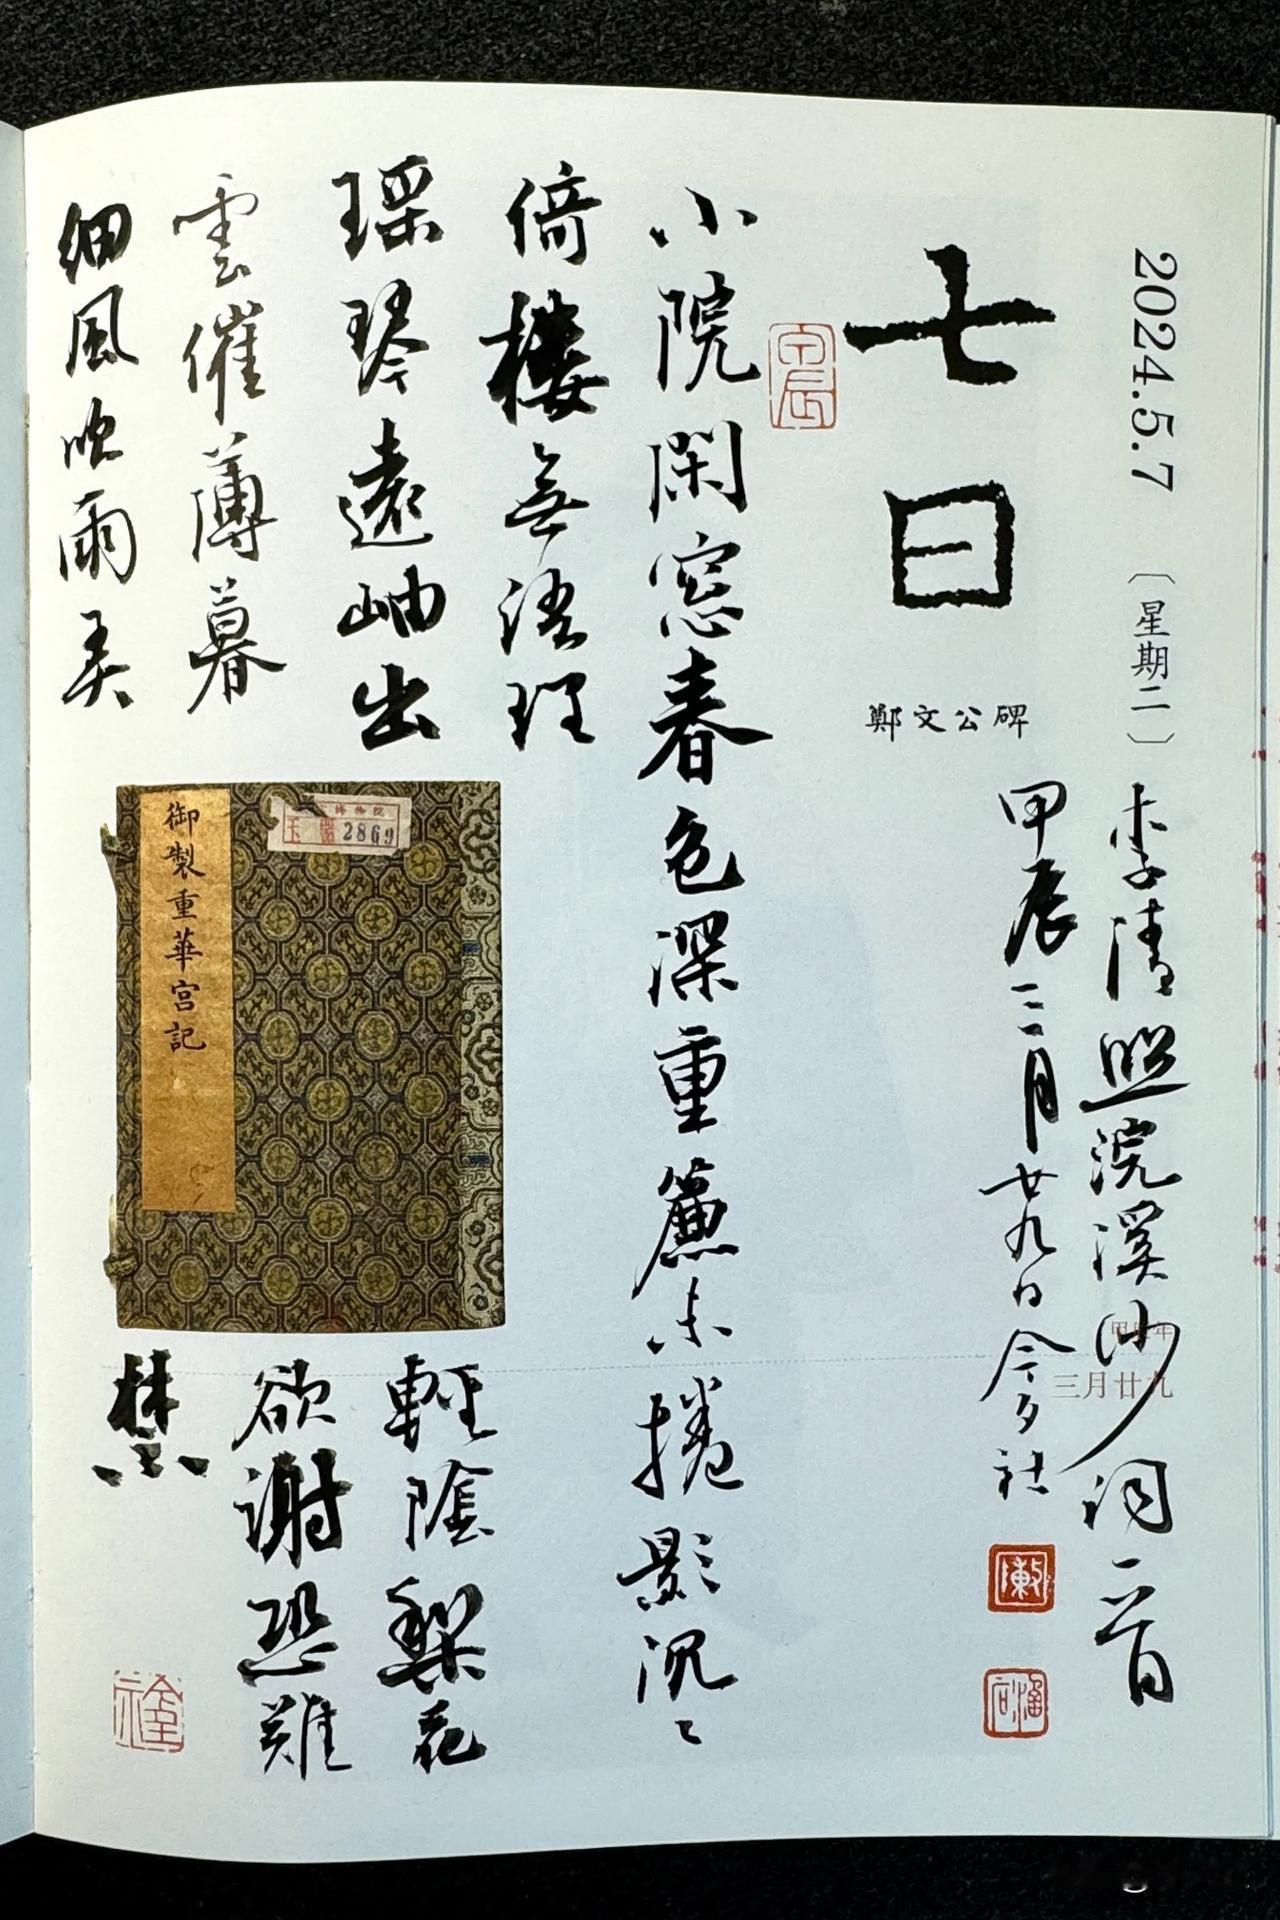 2024.5.7〔星期二〕
李清照浣溪沙詞一首
甲辰三月廿九日
甲辰年
三月廿九
七日
鄭文公碑
小院閑窓春色深重簾未捲影沉〻
倚樓無語理
瑶琴遠岫出
雲催薄暮
細風吹雨弄
輕陰梨花
欲謝恐難
禁
博物院
2869
御製重華宮記